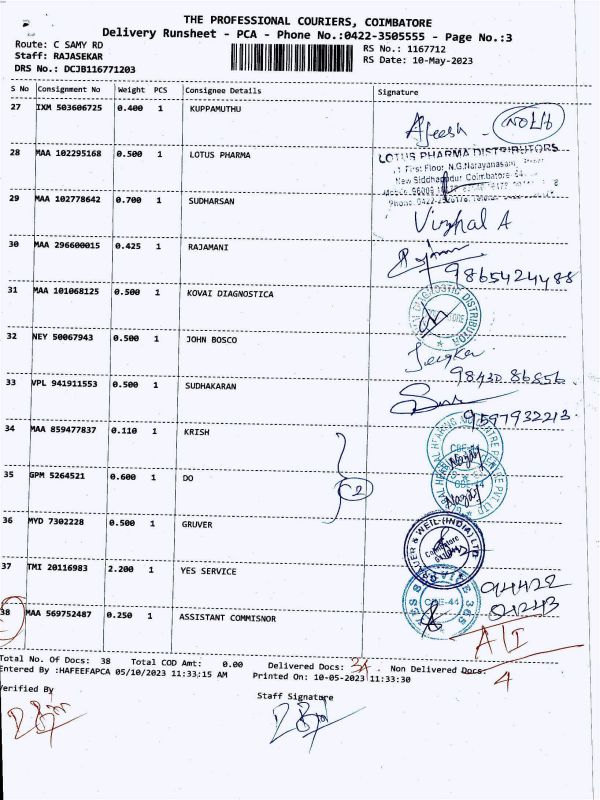 THE PROFESSIONAL COURIERS, COIMBATORE
Delivery Runsheet - PCA - Phone No.:0422-3505555 - Page No.:3
Route: C SAMY RD
RS No.: 1167712
Staff: RAJASEKAR
RS Date: 10-May-2023
DRS No.: DCJB116771203
S No Consignment No Weight PCS Consignee Details Signature
27 IXM 503606725 0.400 1 KUPPAMUTHU
28 MAA 102295168 0.500 1 LOTUS PHARMA
LOTUS PHARMA DISTRIBUTORS
First Floor, N.G.Narayanasami
New Siddhapudur Coimbatore
29 MAA 102778642 0.700 1 SUDHARSAN
Vizhal A
30 MAA 296600015 0.425 1 RAJAMANI
9865424488
31 MAA 101068125 0.500 1 KOVAI DIAGNOSTICA
32 NEY 50067943 0.500 1 JOHN BOSCO
98430 86856
33 VPL 941911553 0.500 1 SUDHAKARAN
9597932213
34 MAA 859477837 0.110 1 KRISH
35 GPM 5264521 0.600 1 DO
36 MYD 7302228 0.500 1 GRUVER
GRAUER & WEIL (INDIA) LTD
Coimbatore
37 TMI 20116983 2.200 1 YES SERVICE
38 MAA 569752487 0.250 1 ASSISTANT COMMISNOR
Total No. Of Docs: 38 Total COD Amt: 0.00 Delivered Docs: 34 Non Delivered Docs: 4
Entered By :HAFEEFAPCA 05/10/2023 11:33:15 AM Printed On: 10-05-2023 11:33:30
Verified By
Staff Signature